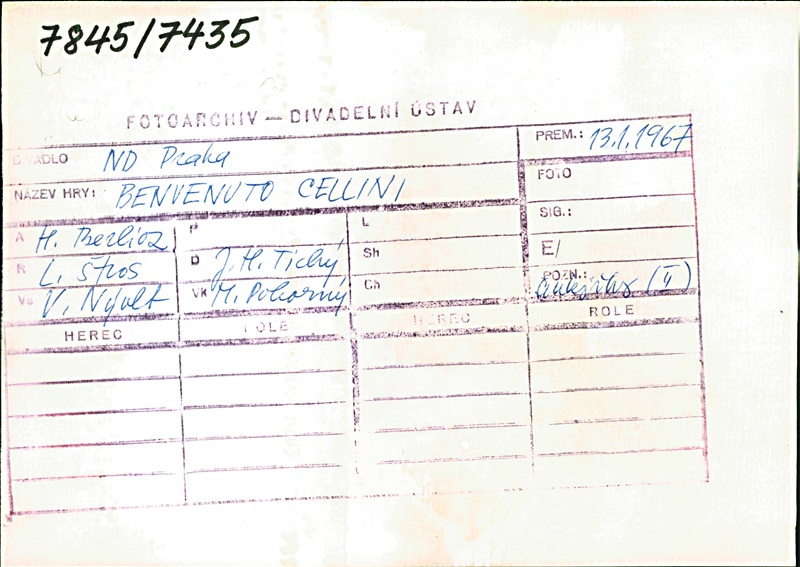 7845/7435
FOTOARCHIV — DIVADELNÍ ÚSTAV
DIVADLO ND Praha
PREM.: 13.1.1967
NÁZEV HRY: BENVENUTO CELLINI
FOTO
A H. Berlioz
P
L
SIG.:
R L. Štros
D J. H. Tichý
Sh
E/
Vs V. Nývlt
Vk M. Pokorný
Ch
POZN.: (II)
HEREC ROLE HEREC ROLE